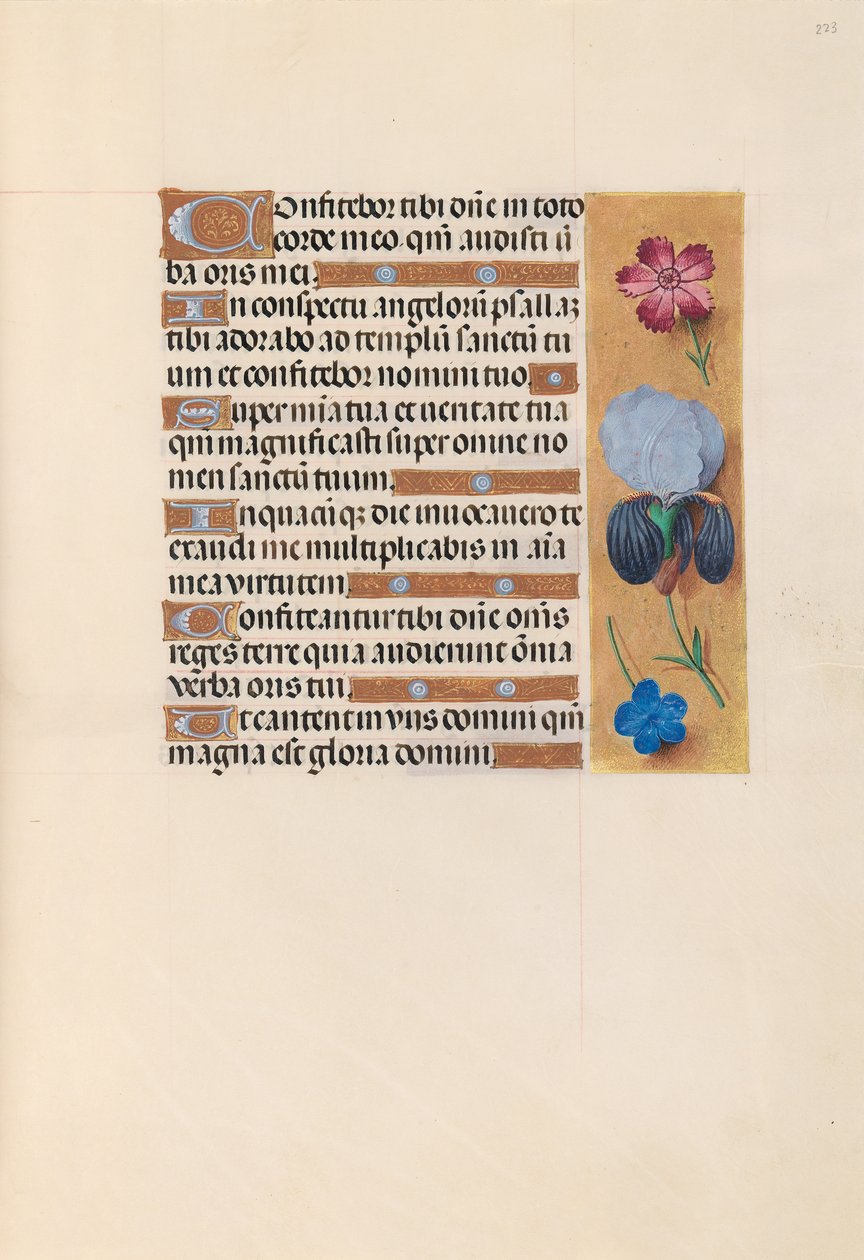 223
Confitebor tibi dn̄e in toto
corde meo. qm̄ audisti v̄
ba oris mei.
In conspectu angeloꝝ psallaꝫ
tibi adorabo ad templū sanctū tu
um et confitebor nomini tuo.
Super mīa tua et ueritate tua
qm̄ magnificasti super omne no
men sanctū tuum.
In quacūqꝫ die inuocauero te
exaudi me multiplicabis in aīa
mea virtutem.
Confiteantur tibi dn̄e om̄s
reges terre quia audierunt oīnia
verba oris tui.
Et cantent in viis domini qm̄
magna est gloria domini.